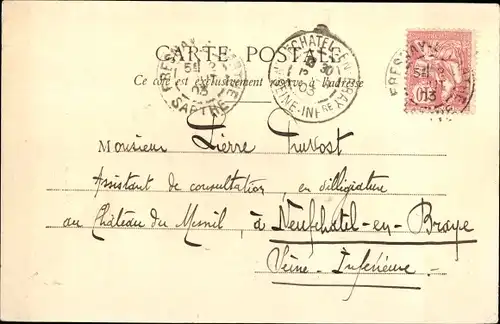 CARTE POSTALE
Ce côté est exclusivement réservé à l'adresse
SARTHE
03
NEUFCHATEL-EN-BRAY
03
SEINE-INFRE
03
Monsieur Pierre Pruvost
Assistant de consultation, en villégiature
au Château du Mesnil, à Neufchatel-en-Braye
Seine-Inférieure.